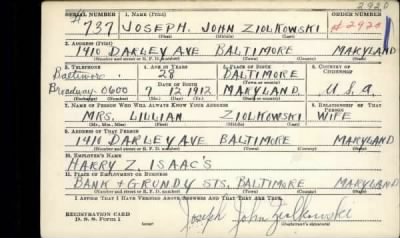 2920
SERIAL NUMBER 1. NAME (Print) ORDER NUMBER
#737 JOSEPH. JOHN ZIOLKOWSKI #2920
2. ADDRESS (Print)
1910 DARLEY AVE BALTIMORE MARYLAND
3. TELEPHONE 4. AGE IN YEARS 5. PLACE OF BIRTH 6. COUNTRY OF CITIZENSHIP
Baltimore 28 BALTIMORE
DATE OF BIRTH
Broadway 0600 7 12 1912 MARYLAND U.S.A.
7. NAME OF PERSON WHO WILL ALWAYS KNOW YOUR ADDRESS 8. RELATIONSHIP OF THAT PERSON
MRS. LILLIAN ZIOLKOWSKI WIFE
9. ADDRESS OF THAT PERSON
1910 DARLEY AVE BALTIMORE MARYLAND
10. EMPLOYER'S NAME
HARRY Z. ISAAC'S
11. PLACE OF EMPLOYMENT OR BUSINESS
BANK + GRUNDY STS. BALTIMORE MARYLAND
I AFFIRM THAT I HAVE VERIFIED ABOVE ANSWERS AND THAT THEY ARE TRUE.
REGISTRATION CARD
D. S. S. Form 1
Joseph John Ziolkowski